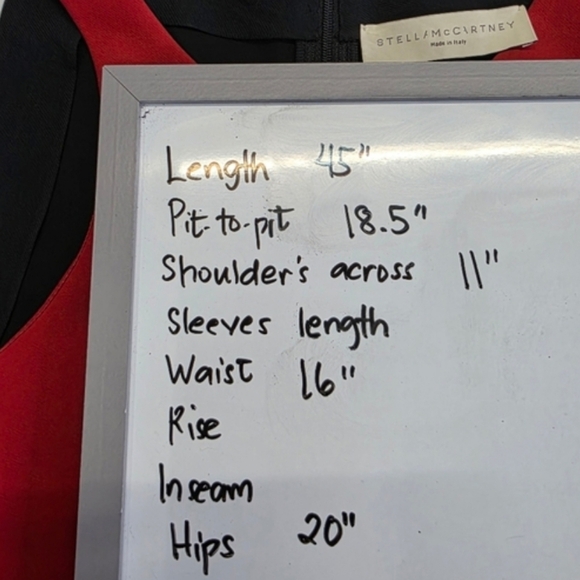 STELLA McCARTNEY
Made in Italy
Length 45"
Pit-to-pit 18.5"
Shoulder's across 11"
Sleeves length
Waist 16"
Rise
Inseam
Hips 20"